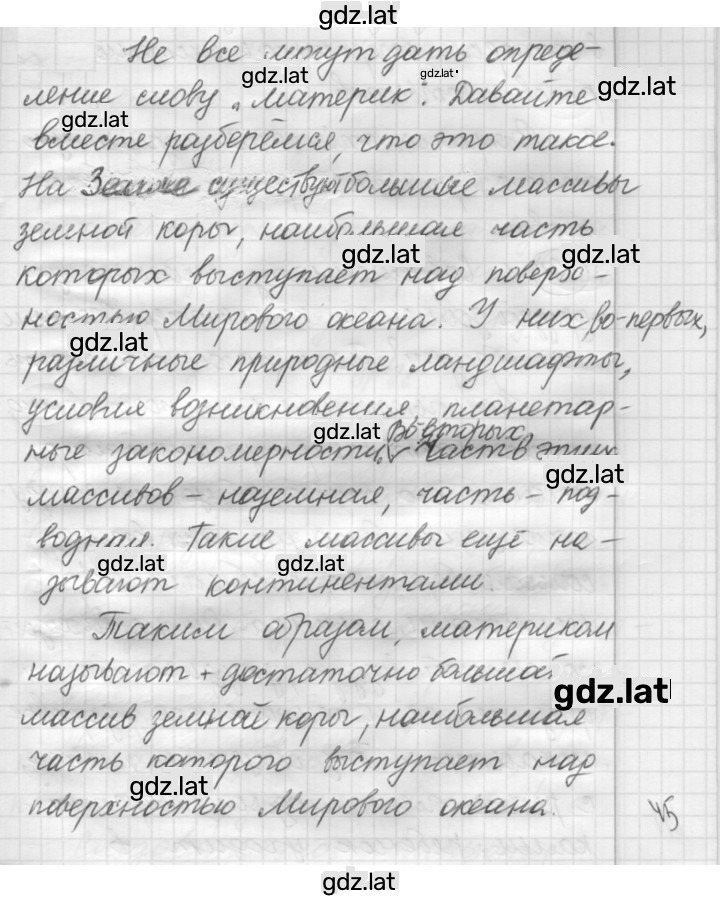 gdz.lat
Не все могут дать опреде-
gdz.lat gdz.lat
ление слову „материк". Давайте gdz.lat
gdz.lat
вместе разберёмся, что это такое.
На Земле существуют большие массивы
земной коры, наибольшая часть
gdz.lat gdz.lat
которых выступает над поверх-
ностью Мирового океана. У них, во-первых,
gdz.lat
различные природные ландшафты,
условия возникновения, планетар-
gdz.lat во-вторых,
ные закономерности. часть этих
gdz.lat
массивов - наземная, часть - под-
водная. Такие массивы ещё на-
gdz.lat gdz.lat
зывают континентами.
Таким образом, материком
называют + достаточно большой
gdz.lat
массив земной коры, наибольшая
часть которого выступает над
gdz.lat
поверхностью Мирового океана.
45
gdz.lat